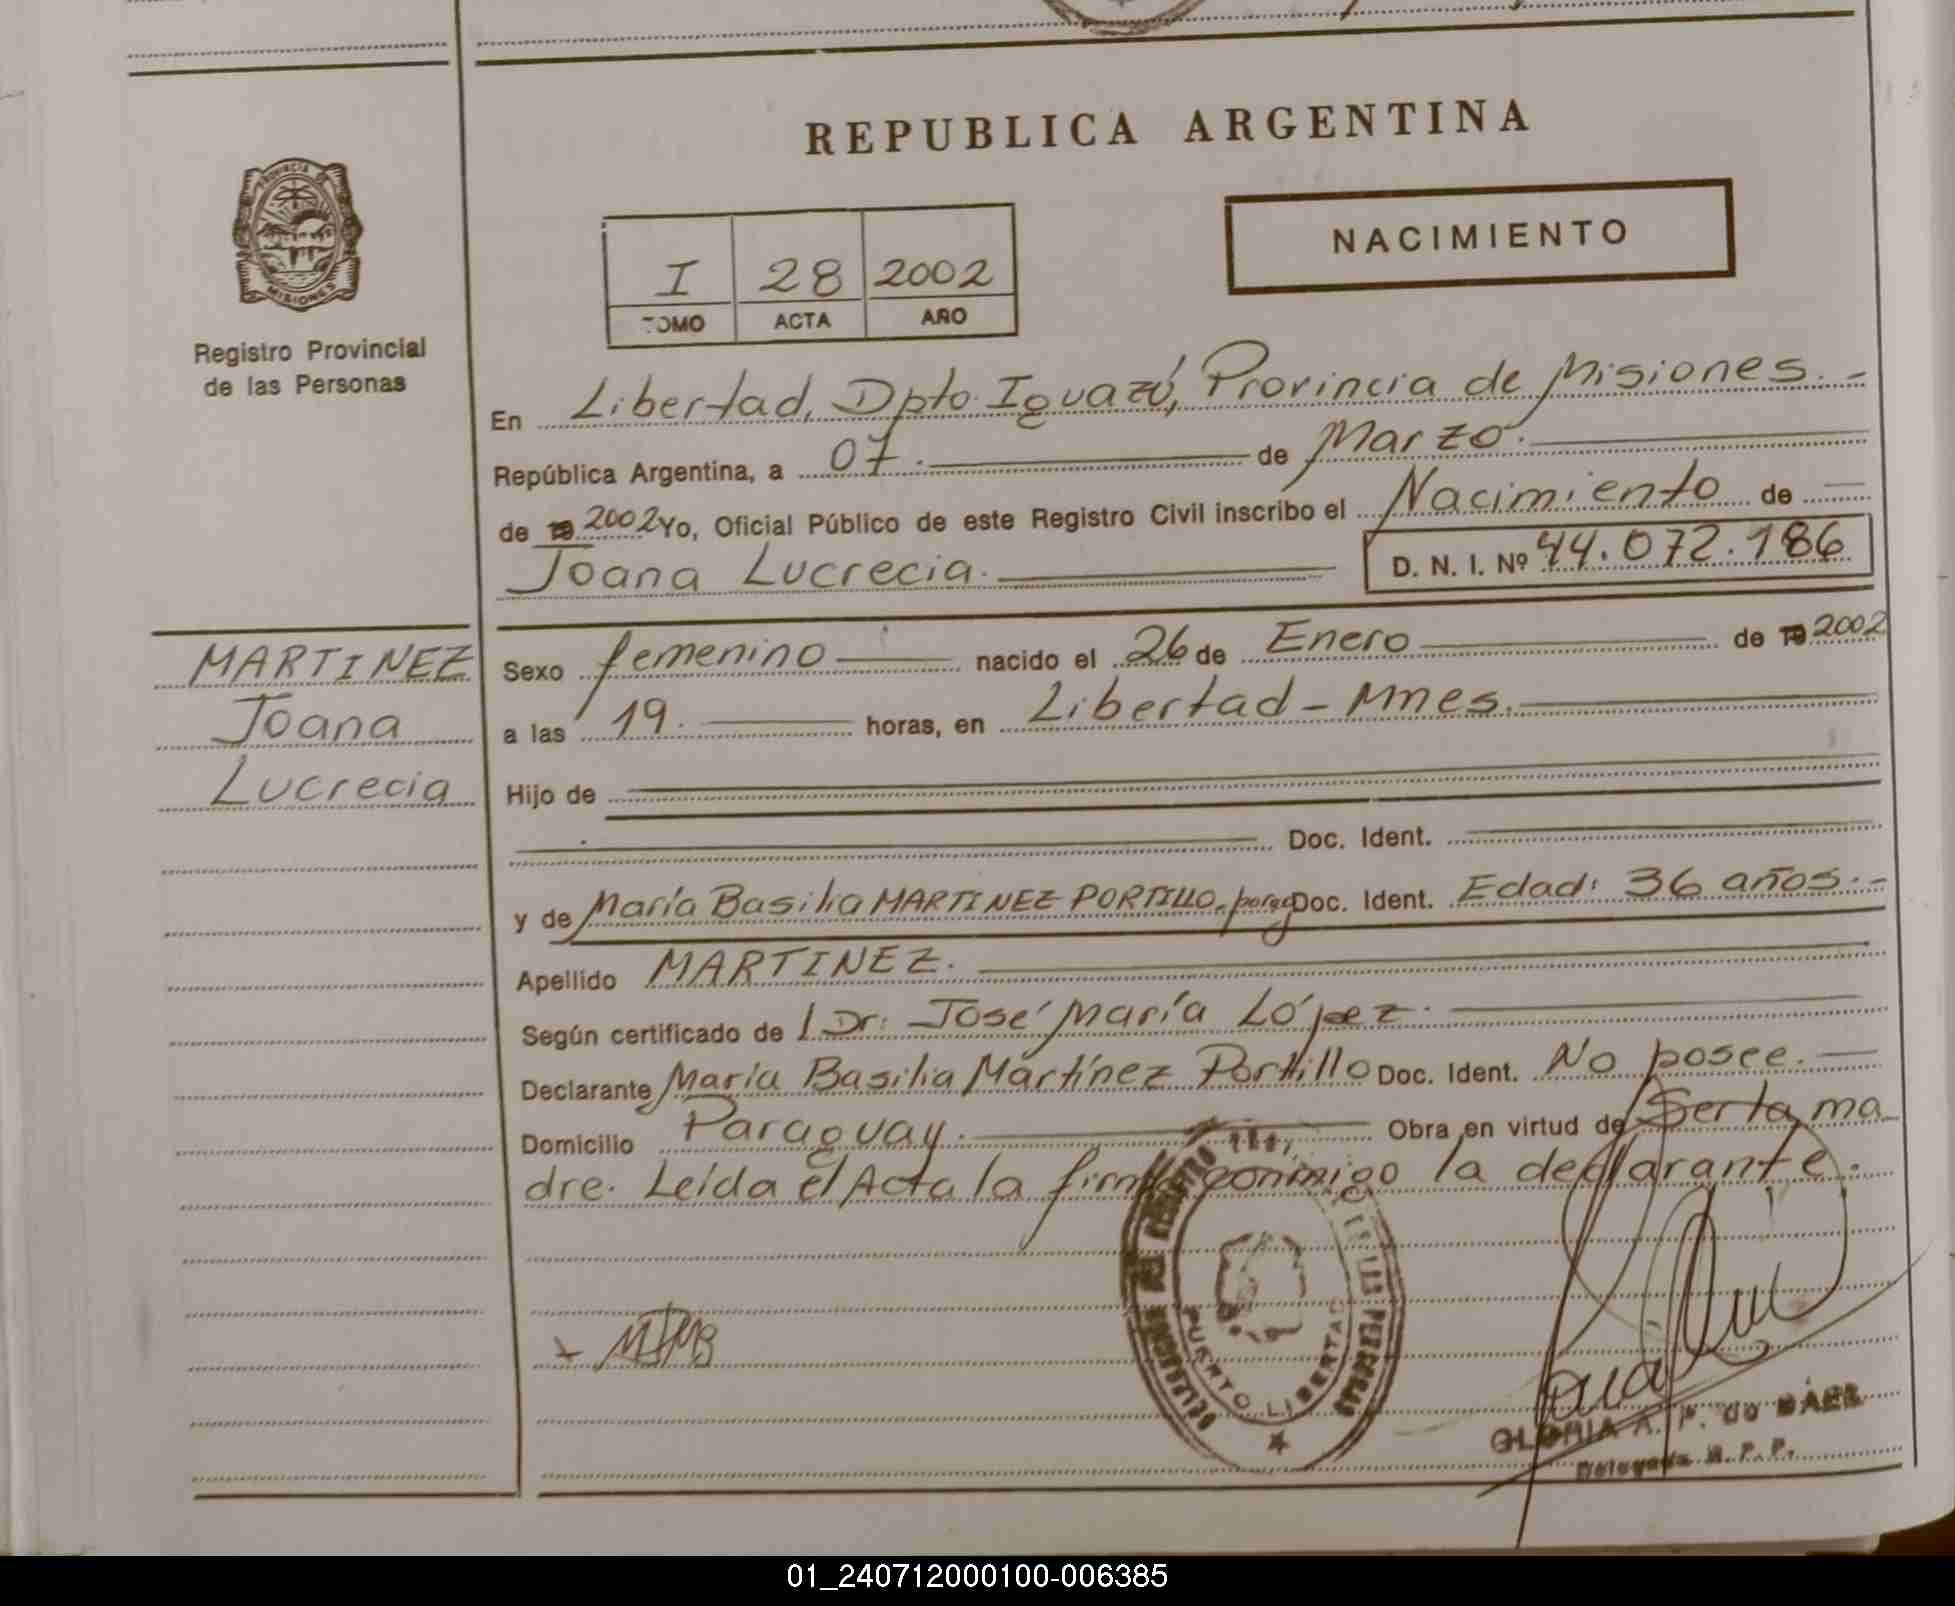 REPUBLICA ARGENTINA
NACIMIENTO
I 28 2002
TOMO ACTA AÑO
PROVINCIA DE
MISIONES
Registro Provincial
de las Personas
En Libertad, Dpto. Iguazú, Provincia de Misiones.-
República Argentina, a 07. de Marzo.
de 19 2002 Yo, Oficial Público de este Registro Civil inscribo el Nacimiento de
Joana Lucrecia. D. N. I. Nº 44.072.186
MARTINEZ
Joana
Lucrecia
Sexo femenino nacido el 26 de Enero de 19 2002
a las 19. horas, en Libertad - Mnes.
Hijo de
Doc. Ident.
y de María Basilia MARTINEZ PORTILLO, parag Doc. Ident. Edad: 36 años.-
Apellido MARTINEZ.
Según certificado de l Dr: José María López.
Declarante María Basilia Martínez Portillo Doc. Ident. No posee.
Domicilio Paraguay. Obra en virtud de Ser la ma
dre. Leída el Acta la firma conmigo la declarante.
PUERTO LIBERTAD
GLORIA A. F. de BÁEZ
Delegada R. P. P.
01_240712000100-006385